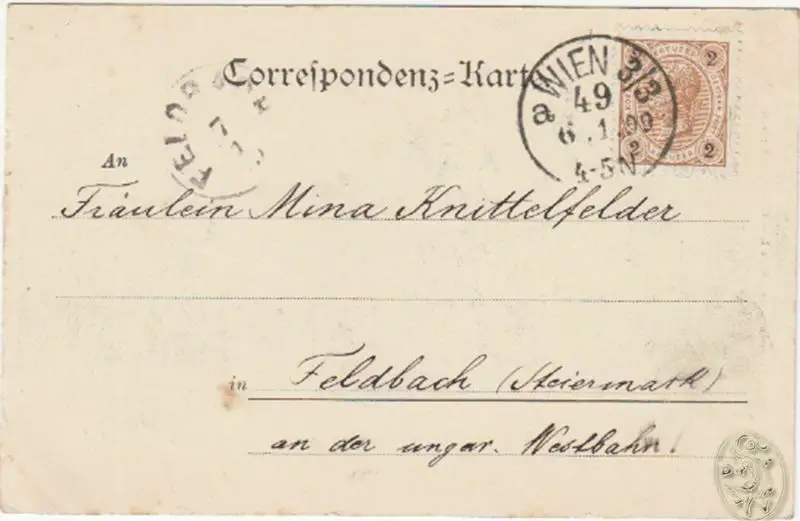 Correspondenz=Karte
WIEN 3/3
a 49
6.1.00
4-5N
2
2
2
FELDB
7
1
An
Fräulein Mina Knittelfelder
in Feldbach (Steiermark)
an der ungar. Westbahn.